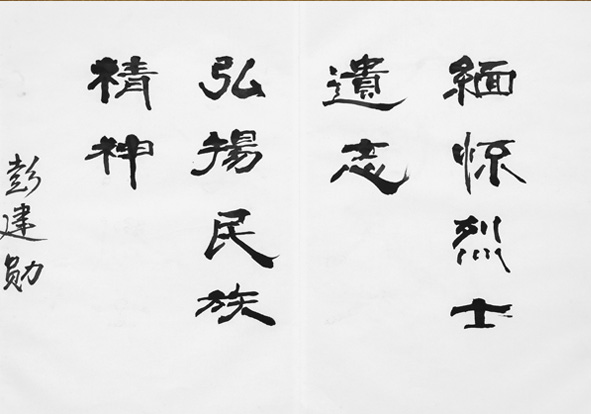 緬惊烈士
遺志
弘揚民族
精神
彭建勋